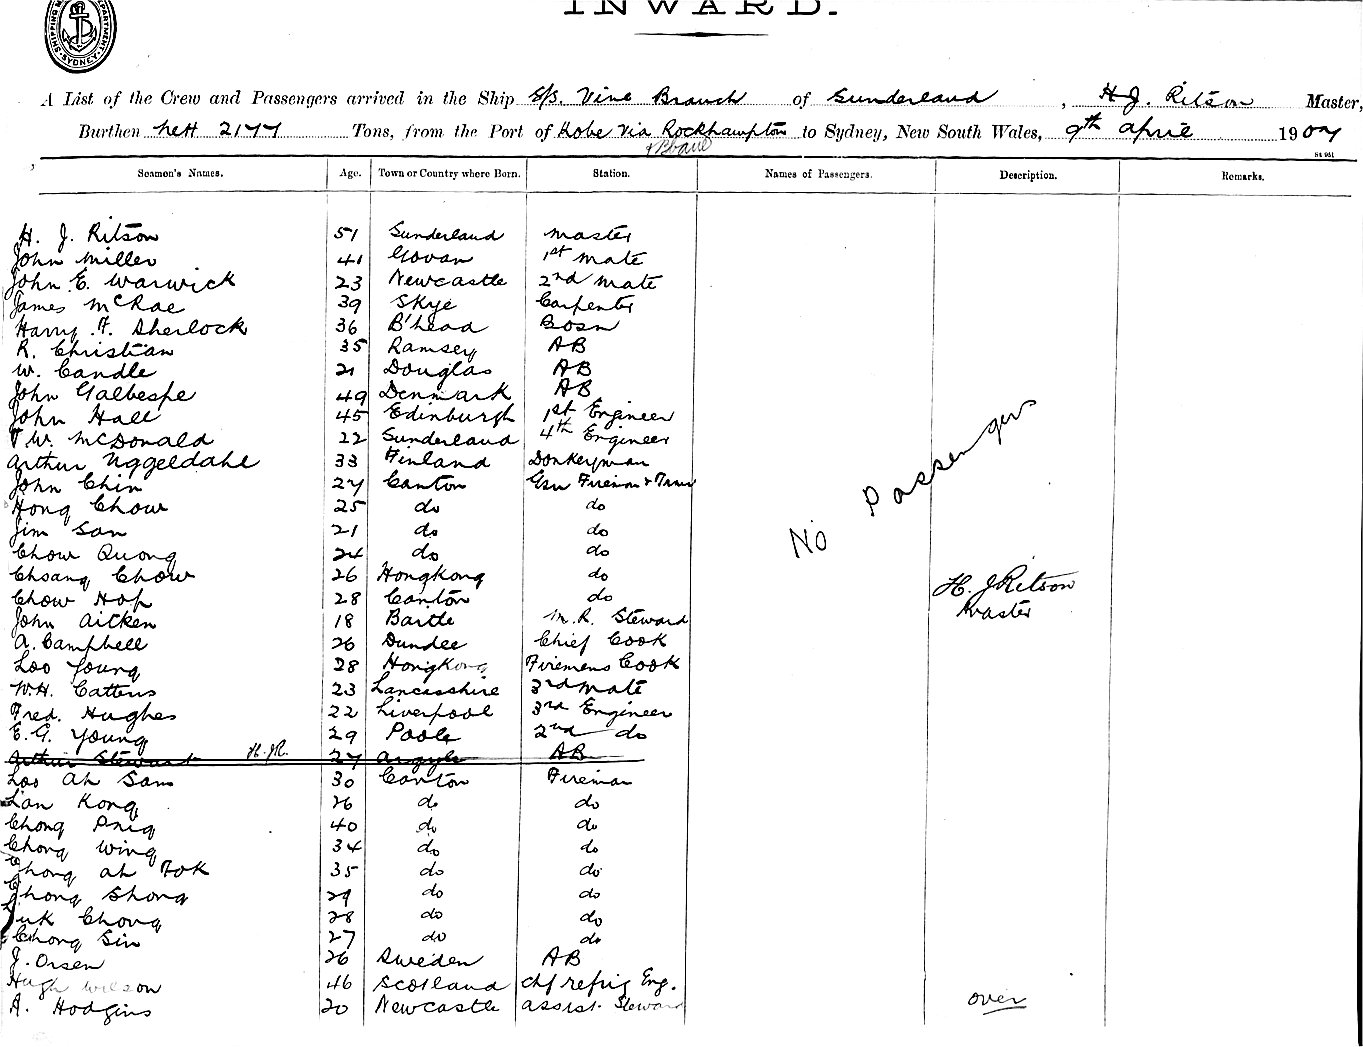 INWARD.
SHIPPING DEPARTMENT SYDNEY
A List of the Crew and Passengers arrived in the Ship S/S. Vine Branch of Sunderland, H. J. Ritson Master,
Burthen nett 2177 Tons, from the Port of Kobe via Rockhampton to Sydney, New South Wales, 9th April 1907
& B'bane
Seamen's Names. Age. Town or Country where Born. Station. Names of Passengers. Description. Remarks.
H. J. Ritson 51 Sunderland master
John Miller 41 Govan 1st mate
John E. Warwick 23 Newcastle 2nd mate
James McRae 39 Skye Carpenter
Harry F. Sherlock 36 B'head Bosn
R. Christian 35 Ramsey AB
W. Candle 21 Douglas AB
John Galbespe 49 Denmark AB
John Hall 45 Edinburgh 1st Engineer
T W. McDonald 22 Sunderland 4th Engineer
Arthur Uggeldahl 33 Finland Donkeyman
John Chin 27 Canton Fireman &
Hong Chow 25 do do
Jim San 21 do do
Chow Quong 24 do do
Chsang Chow 26 Hongkong do
Chow Hop 28 Canton do
John Aitken 18 Bartle M.R. Steward
A. Campbell 26 Dundee Chief Cook
Loo Young 28 Hongkong Firemens Cook
W.H. Cattens 23 Lancasshire 3rd mate
Fred. Hughes 22 Liverpool 3rd Engineer
E. G. Young 29 Poole 2nd do
Arthur Stewart H.J.R. 27 Argyle AB
Loo Ah Sam 30 Canton Fireman
Lan Kong 26 do do
Chong Pnig 40 do do
Chong Wing 34 do do
Chong Ah Fok 35 do do
Chong Shong 29 do do
Luk Chong 28 do do
Chong Sin 27 do do
J. Orsen 26 Sweden AB
Hugh Wilson 46 Scotland chf refrig Eng.
A. Hodgins 20 Newcastle assist. Steward
No Passengers
H. J Ritson
Master
over